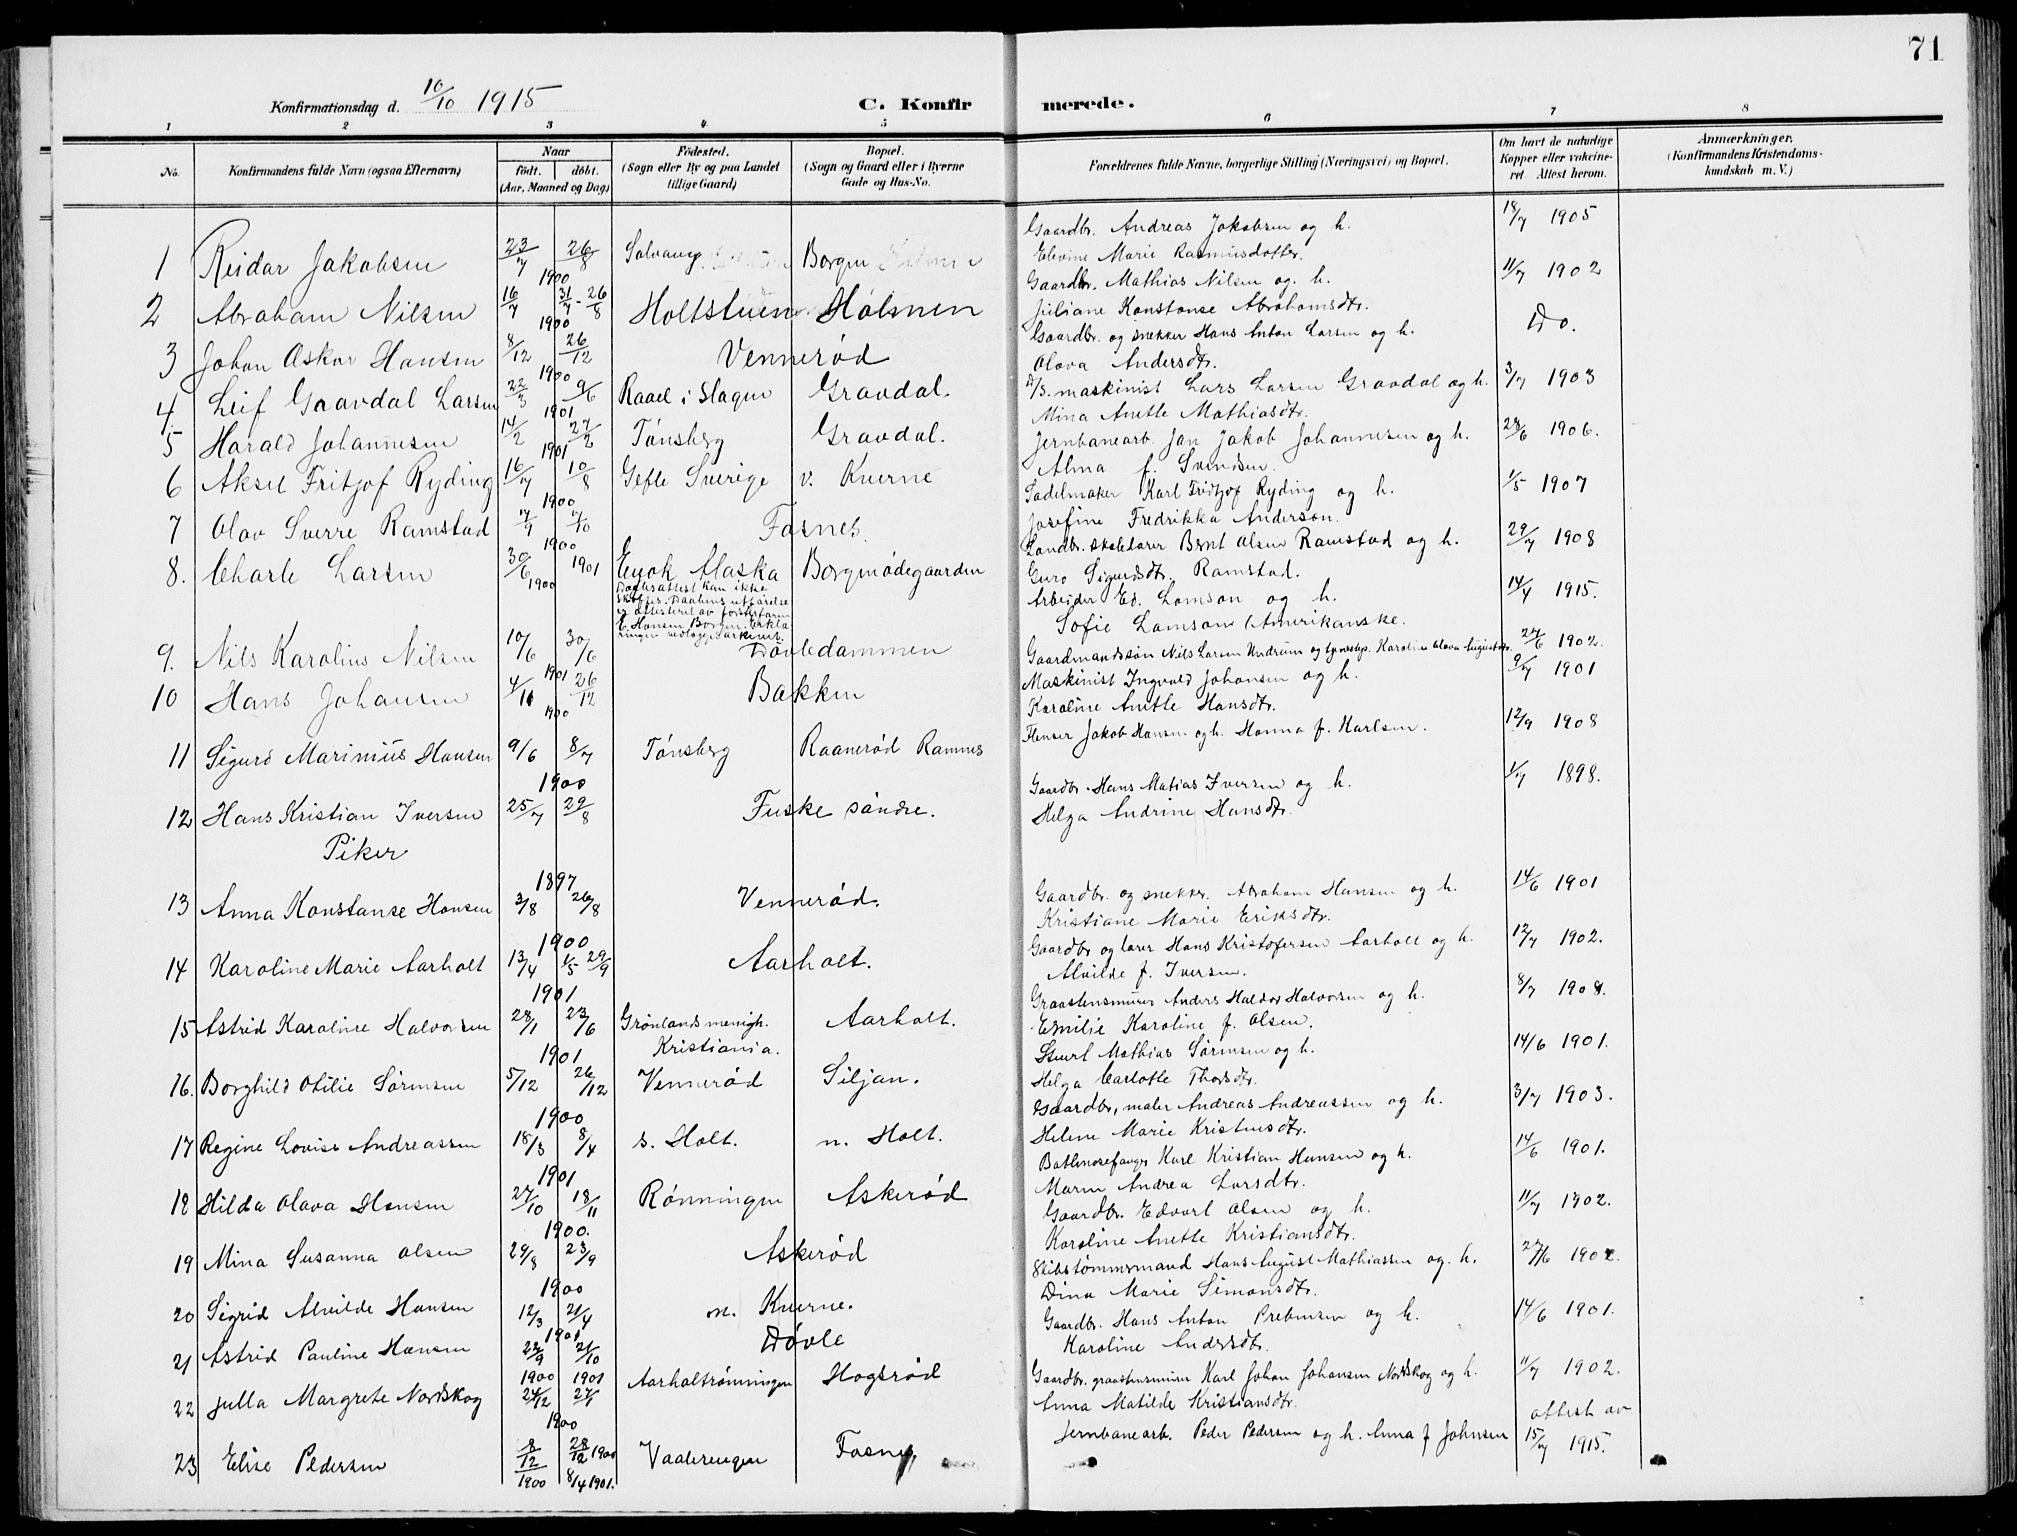 71
Konfirmationsdag d. 10/10 1915
C. Konfirmerede.
1 2 3 4 5 6 7 8
No.
Konfirmandens fulde Navn (ogsaa Efternavn).
Naar født. døbt. (Aar, Maaned og Dag)
Fødested. (Sogn eller By og paa Landet tillige Gaard)
Bopæl. (Sogn og Gaard eller i Byerne Gade og Hus-No.
Forældrenes fulde Navne, borgerlige Stilling (Næringsvei) og Bopæl.
Om havt de naturlige Kopper eller vakcineret Attest herom.
Anmærkninger. (Konfirmandens Kristendomskundskab m. V.)
1 Reidar Jakobsen 23/7 26/8 Solvang Borgen Gaardbr. Andreas Jakobsen og h. 18/7 1905
Elevine Marie Rasmusdotter.
1900
2 Abraham Nilsen 16/7 31/7 - 26/8 Holtstuen Holmen Gaardbr. Mathias Nilsen og h. 11/7 1902
Juliane Konstanse Abrahamsdtr.
1900
3 Johan Oskar Hansen 8/12 26/12 Vennerød Gaardbr. og snekker Hans Anton Larsen og h. Do.
Olava Andersdtr.
1900
4. Leif Gravdal Larsen 22/3 9/6 Raael i Slagen Gravdal. D/S. maskinist Lars Larsen Gravdal og h. 3/7 1903
Mina Anette Mathiasdtr.
1901
5 Harald Johannesen 14/2 27/2 Tønsberg Gravdal. Jernbanearb. Jan Jakob Johannesen og h. 28/6 1906.
Alma f. Svendsen.
1901
6 Aksel Fritjof Ryding 16/7 10/8 Gefle Sverige v. Kverne Sadelmaker Karl Fridtjof Ryding og h. 1/5 1907
Josefine Fredrikka Anderson.
1900
7 Olav Sverre Ramstad 17/9 17/10 Fasnes. Landbr. skolelærer Bernt Olsen Ramstad og h. 29/7 1908
Guro Sigurdsdtr. Ramstad.
1900
8. Charle Larsen 30/6 1900 1901 Eyok Alaska Borgenødegaarden Arbeider Ed. Lamson og h. 14/4 1915.
Sofie Lamson (Amerikanske.
Daabsattest kan ikke
skaffes. Daabens utførelse
er attesteret av fosterfaren
E. Hansen Borgen. Erklæ
ringen vedlægges arkivet.
9. Nils Karolius Nilsen 10/6 30/6 Døvledammen Gaardmandssøn Nils Larsen Undrum og tjenestep. Karoline Olava Augustdtr. 27/6 1902.
1901
10 Hans Johansen 4/11 26/12 Bakken Maskinist Ingvald Johansen og h. 9/7 1901
Karoline Anette Hansdtr.
1900
11 Sigurd Marinius Hansen 9/6 8/7 Tønsberg Raanerød Ramnes Flenser Jakob Hansen og h. Hanna f. Karlsen. 12/9 1908
1900
12 Hans Kristian Iversen 25/7 29/8 Fuske søndre. Gaardbr. Hans Matias Iversen og h. 1/7 1898.
Helga Andrine Hansdtr.
Piker
1897
13 Anna Konstanse Hansen 3/8 26/8 Vennerød. Gaardbr. og snekker. Abraham Hansen og h. 14/6 1901
Kristiane Marie Eriksdtr.
1900
14 Karoline Marie Aarholt 13/4 1/5 29/9 Aarholt. Gaardbr og lærer Hans Kristofersen Aarholt og h. 12/7 1902.
Alvilde f. Iversen.
1901
15 Astrid Karoline Halvorsen 28/1 23/6 Grønlands menigh. Kristiania. Aarholt. Graastensmurer Anders Haldor Halvorsen og h. 8/7 1908.
Emilie Karoline f. Olsen.
1901
16. Borghild Otilie Sørensen 5/12 26/12 Vennerød Siljan. Stuert Mathias Sørensen og h. 14/6 1901.
Helga Carlotte Thorsdtr.
1900
17 Regine Lovise Andreassen 18/3 8/4 s. Holt. n. Holt. Gaardbr, maler Andreas Andreassen og h. 3/7 1903.
Helene Marie Kristensdtr.
1901
18 Hilda Olava Hansen 27/10 18/11 Rønningen Askerød Botlenosefanger Karl Kristian Hansen og h. 14/6 1901.
Maren Andrea Larsdtr.
1900.
19 Mina Susanna Olsen 29/8 23/9 Askerød Gaardbr. Edvart Olsen og h. 11/7 1902.
Karoline Anette Kristiansdtr.
1900
20 Sigrid Alvilde Hansen 12/3 21/4 m. Kverne. Skibstømmermand Hans August Mathiassen og h. 27/6 1902.
Dina Marie Simonsdtr.
1901
21 Astrid Pauline Hansen 22/9 21/10 Døvle Gaardbr. Hans Anton Prebensen og h. 14/6 1901.
Karoline Andersdtr.
1900 1901
22 Julla Margrete Nordskog 24/12 27/1 Aarholtrønningen Hogsrød Gaardbr. graastensmurer Karl Johan Johansen Nordskog og h. 11/7 1902.
Anna Matilde Kristiansdtr.
1900
23 Elise Pedersen 8/12 1900 28/12 1900 8/4 1901. Vaalerengen Fasnes Jernbanearb. Peder Pedersen og h. Anna f Johnsen attest av 15/7 1915.